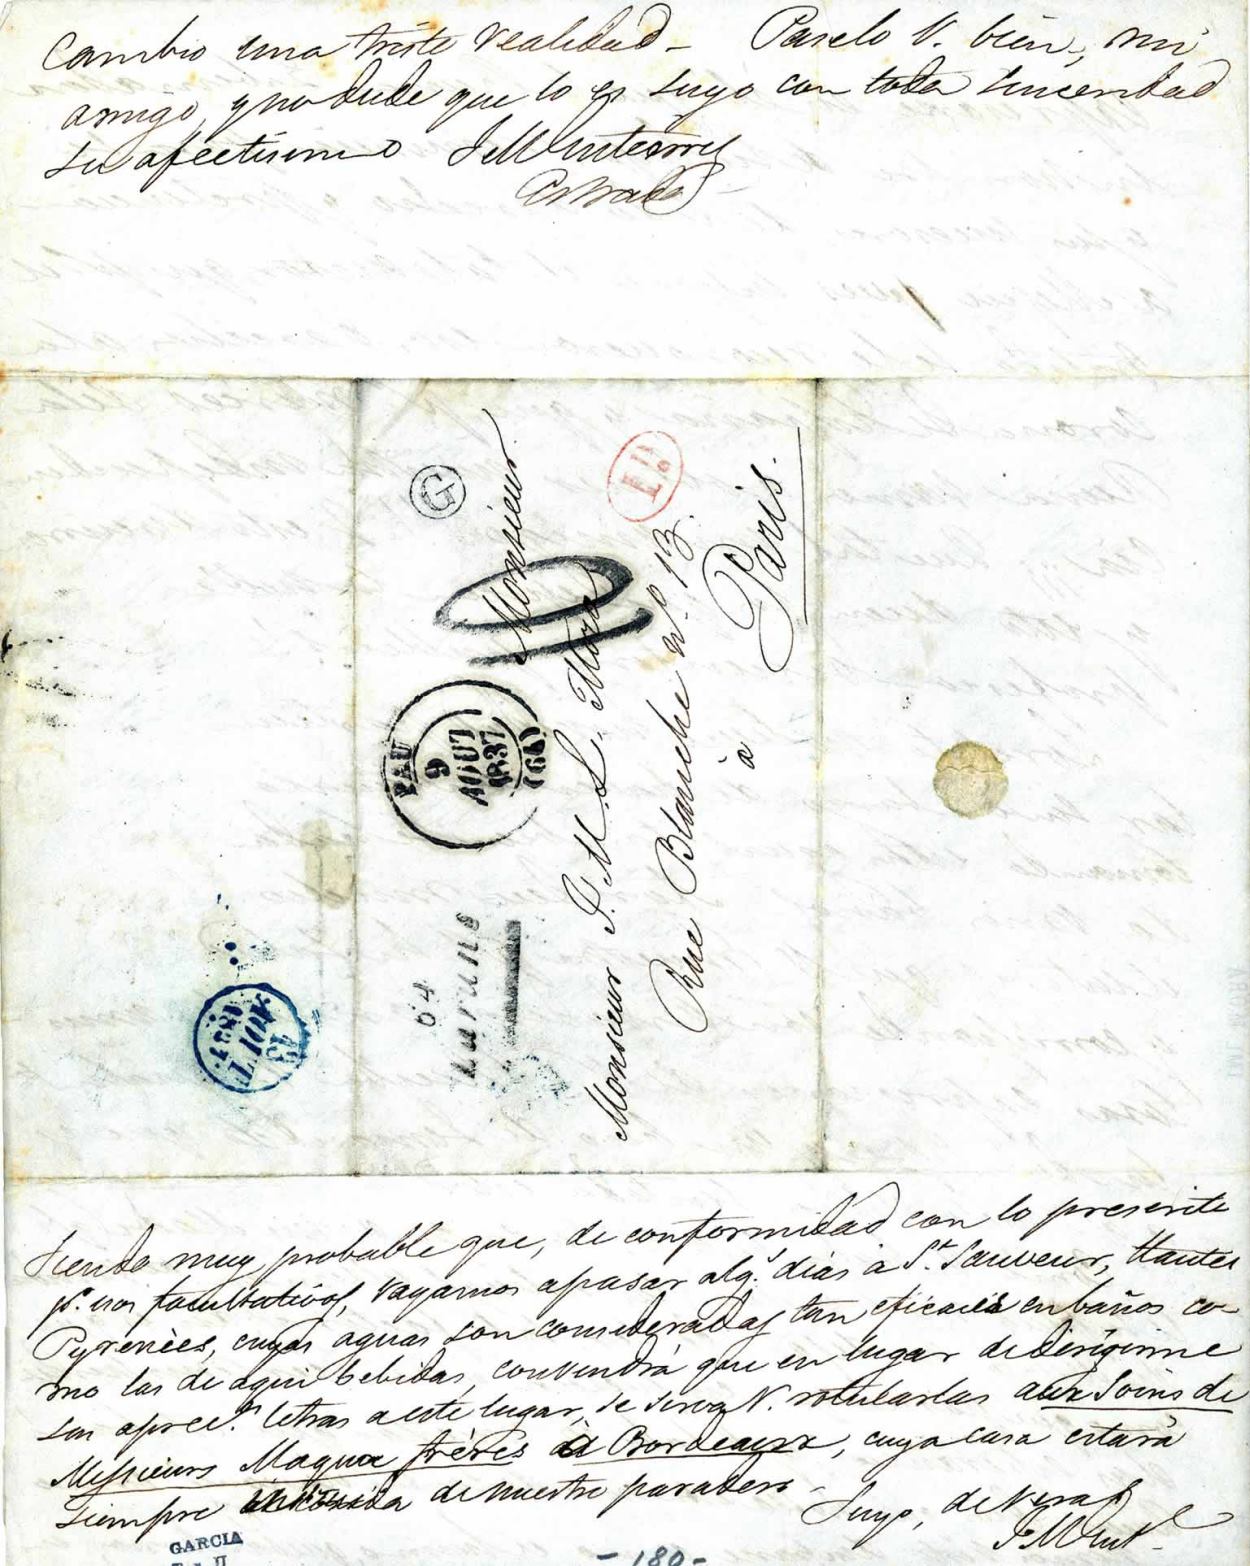 Cambio una triste realidad_ Paselo V. bien, mi
amigo, y no dude que lo es suyo con toda sinceridad
su afectisimo
Monsieur
Monsieur J. M. L. Mora
Rue Blanche Nº. 13.
à
Paris.
G
P.P.
PAU
9
AOUT
1837
(64)
64
Laruns
13
AOUT
1837
Siendo muy probable que, de conformidad con lo prescrito
pr. nos facultativos, vayamos a pasar algs. dias à St. Sauveur, Hautes
Pyrenèes, cuyas aguas son consideradas tan eficaces en baños co-
mo las de aqui bebidas, convendrá que en lugar de dirigirme
sus apreco. letras a este lugar, se sirva V. rotularlas aux soins de
Messieurs Maqua frères à Bordeaux, cuya casa estará
siempre de nuestro paradero_
Suyo, de veras
GARCIA
- 180 -